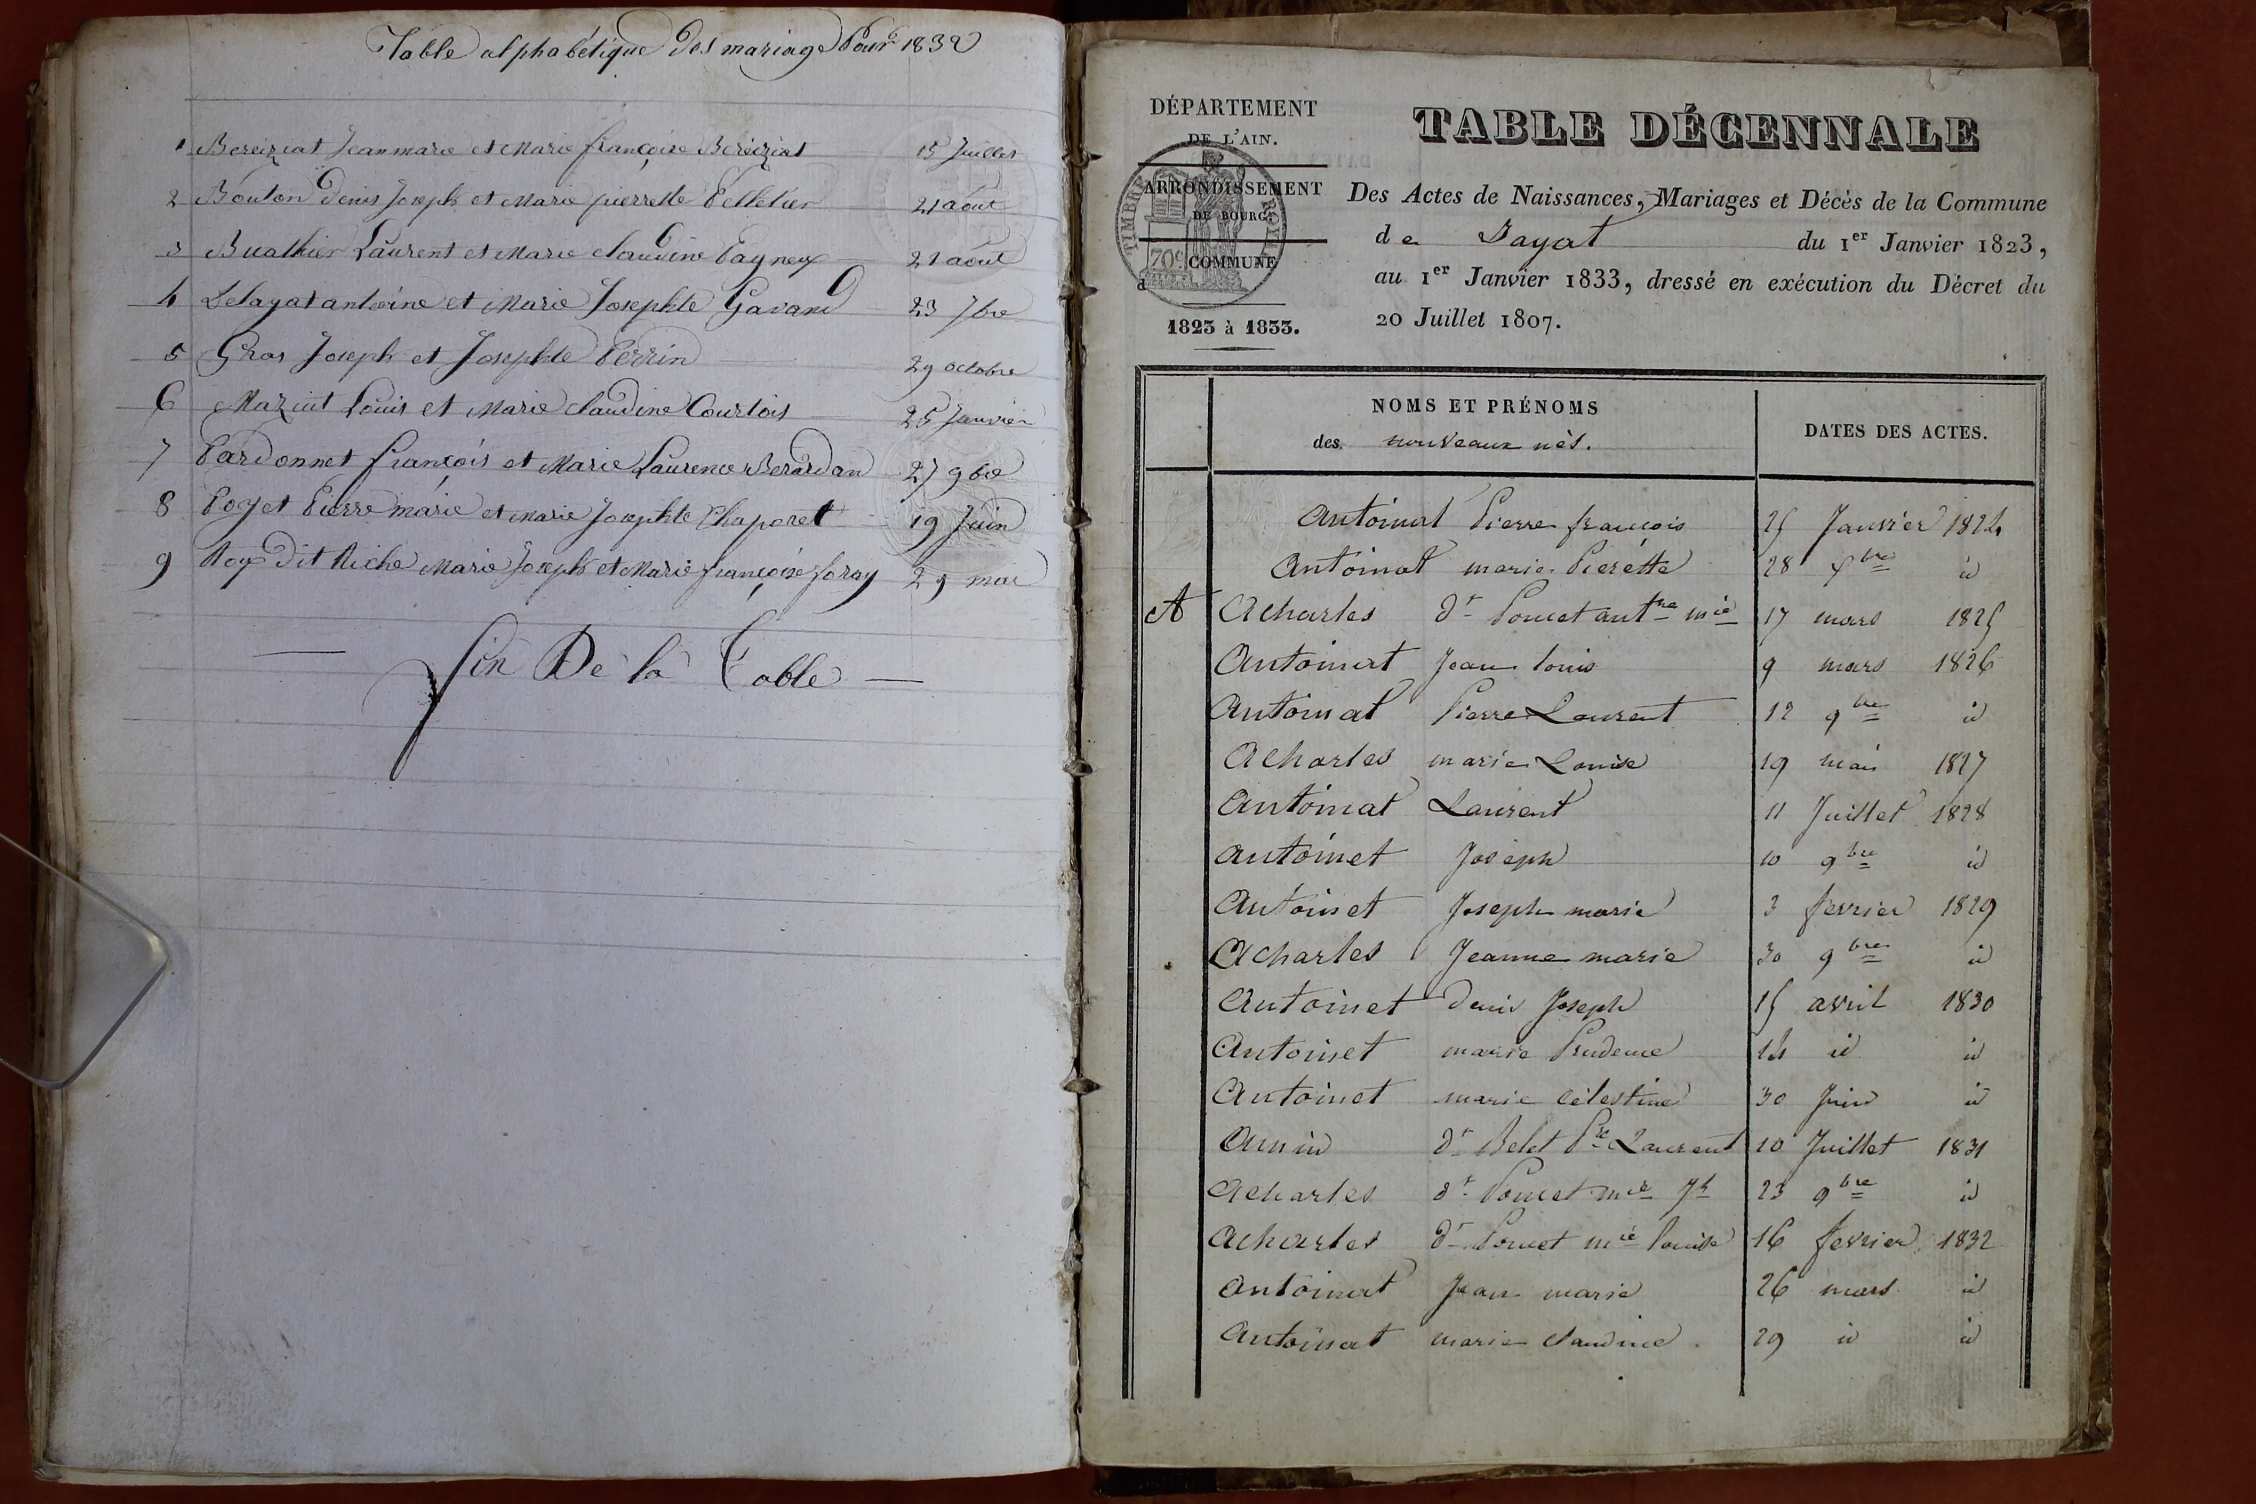 Table alphabétique des mariage Pour 1832
1 Bereiziat Jean marie et Marie françoise Bereiziat 15 Juillet
2 Bouton Denis Joseph et Marie pierrette Pelletier 21 aout
3 Buathier Laurent et Marie claudine Pagneux 21 aout
4 Delayat antoine et Marie Josephte Gavand 23 7bre
5 Gras Joseph et Josephte Perrin 29 octobre
6 Maziat Louis et Marie claudine Courtois 25 Janvier
7 Pardonnet françois et Marie Laurence Berardan 27 9bre
8 Poyet Pierre marie et Marie Josephte Chaparel 19 Juin
9 Roy Dit Riche Marie Joseph et Marie françoise foray 29 mai
fin De la Table
DÉPARTEMENT
DE L'AIN.
ARRONDISSEMENT
DE BOURG
COMMUNE
d
1823 à 1833.
TIMBRE ROYAL
70c
TABLE DÉCENNALE
Des Actes de Naissances, Mariages et Décès de la Commune
de Jayat du 1er Janvier 1823,
au 1er Janvier 1833, dressé en exécution du Décret du
20 Juillet 1807.
NOMS ET PRÉNOMS
des nouveaux nés.
DATES DES ACTES.
Antoinat Pierre françois 25 Janvier 1824
Antoinat marie Pierétte 28 xbre id
A Acharles dt Poncet antne mie 17 mars 1825
Antoinat Jean louis 9 mars 1826
Antoinat Pierre Laurent 12 9bre id
Acharles marie Louise 19 mai 1827
Antoinat Laurent 11 Juillet 1828
Antoinet Joseph 10 9bre id
Antoinet Joseph marie 3 fevrier 1829
Acharles Jeanne marie 30 9bre id
Antoinet denis Joseph 15 avril 1830
Antoinet marie Prudence 14 id id
Antoinet marie Célestine 30 Juin id
dt Belet Pre Laurent 10 Juillet 1831
Acharles dt Poncet mie Jh 23 9bre id
Acharles dt Poncet mie louise 16 fevrier 1832
Antoinat Jean marie 26 mars id
Antoinat marie claudine 29 id id